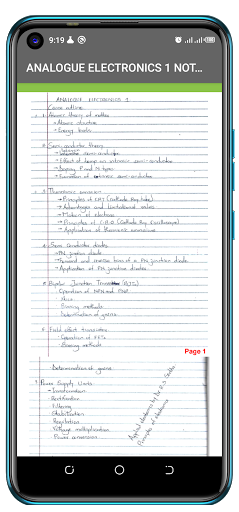 9:19
ANALOGUE ELECTRONICS 1 NOT...
ANALOGUE ELECTRONICS 1
Course outline
1 Atomic theory of matter
- Atomic structure
- Energy levels
2 Semi conductor theory
semi-conductor
- Effect of temp on intrinsic semi-conductor
- Doping P and N-types
- Formation of semi-conductor
3 Thermionic emission
- Principles of CRT (Cathode Ray tube)
- Advantages and limitations
- Motion of electrons
- Principles of C.R.O (Cathode Ray Oscilloscope)
- Application of thermionic emission
4 Semi conductor diodes
- PN junction diode
- Forward and reverse bias of a PN junction diode
- Application of PN junction diodes
5 Bipolar Junction Transistor (BJTs)
- Operation of NPN and PNP
- Biasing methods
- Determination of gains
6 Field effect transistors
- Operation of FETs
- Biasing methods
Page 1
- Determination of gains
7 Power Supply Units
- Transformation
- Rectification
- Filtering
- Stabilization
- Regulation
- Voltage multiplication
- Power conversion
Applied electronics by Dr R.S Sedha
Principles of electronics